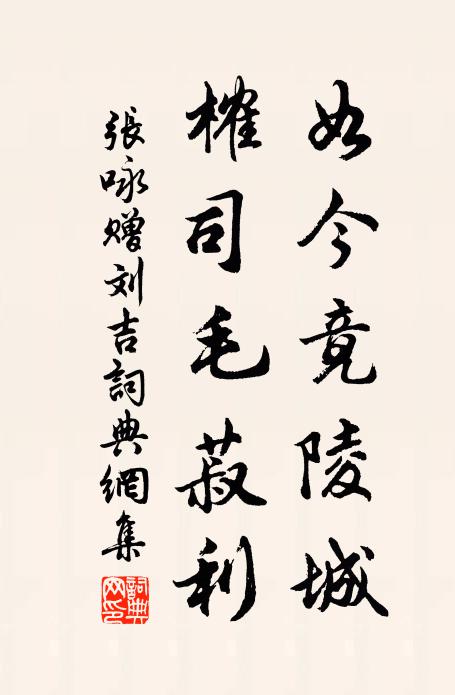 如今竟陵城
榷司毛菽利
張咏贈刘吉詞典網集
詞典网印